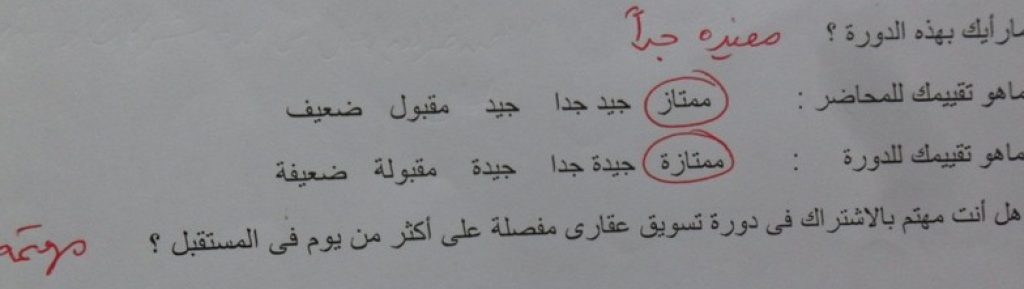 مارأيك بهذه الدورة ؟ مفيده جداً
ماهو تقييمك للمحاضر : ممتاز جيد جدا جيد مقبول ضعيف
ماهو تقييمك للدورة : ممتازة جيدة جدا جيدة مقبولة ضعيفة
هل أنت مهتم بالاشتراك فى دورة تسويق عقارى مفصلة على أكثر من يوم فى المستقبل ؟ مهتمه